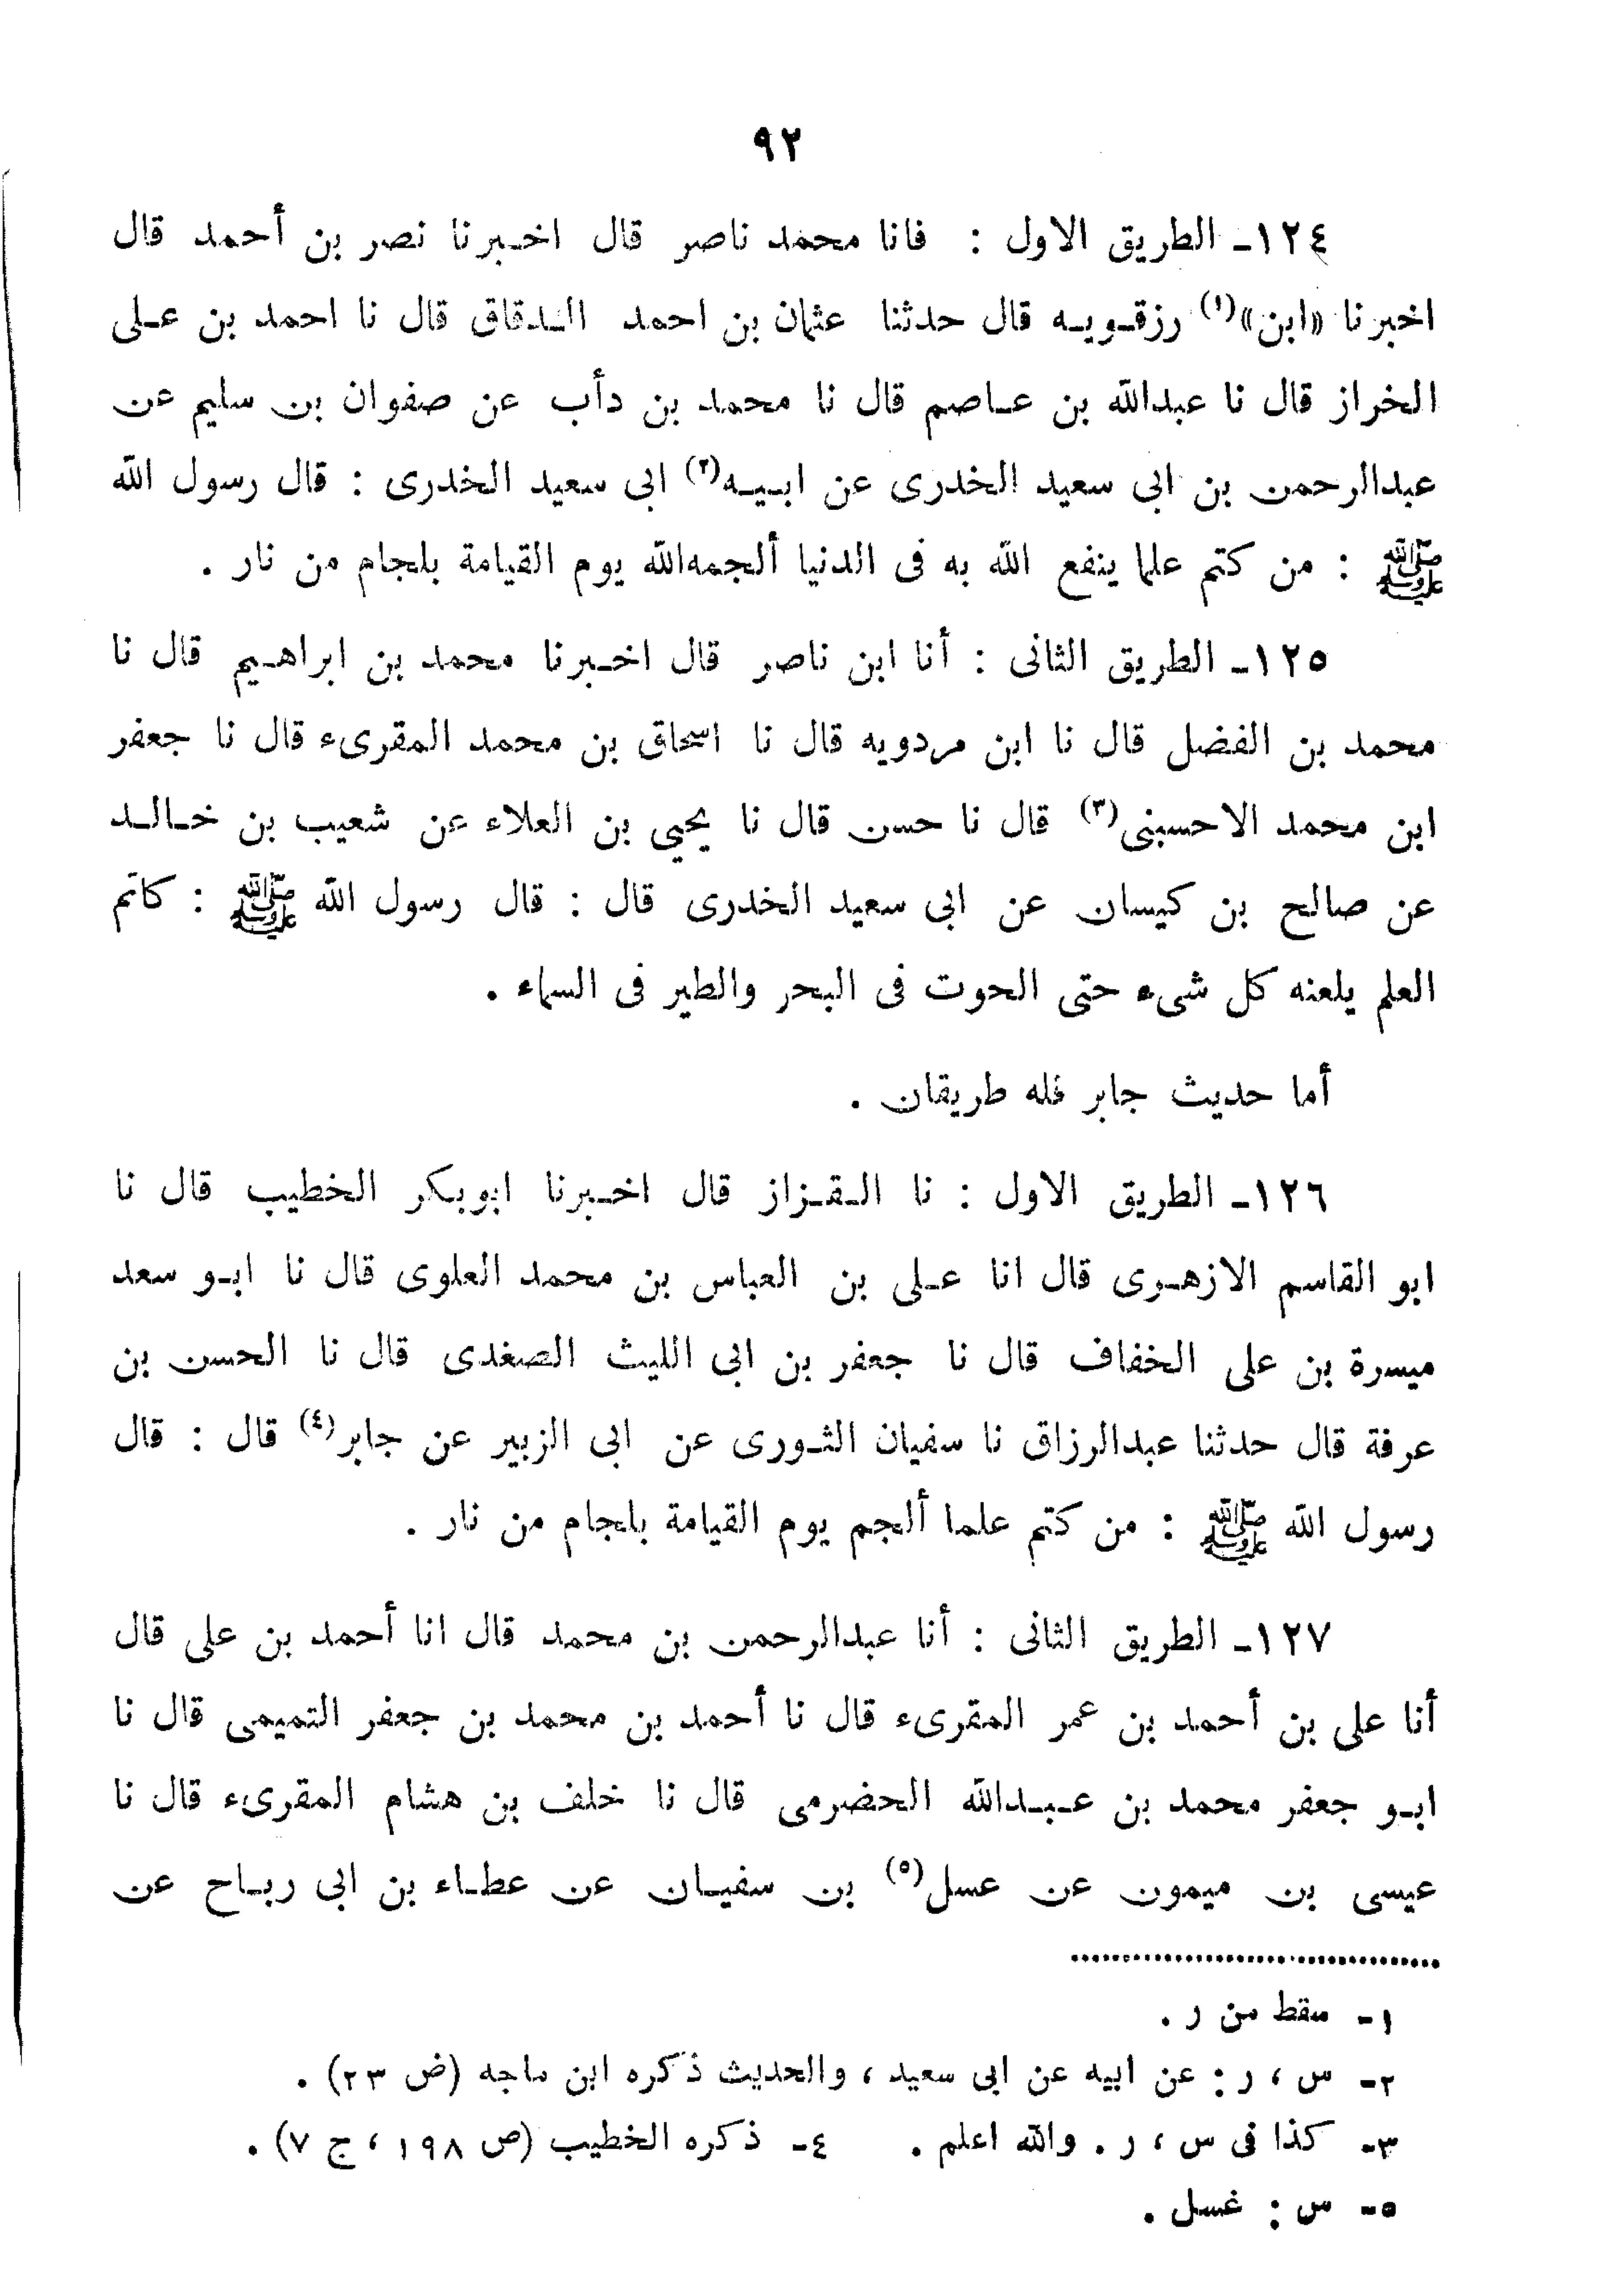 ٩٢
١٢٤ـ الطريق الاول : فانا محمد ناصر قال اخبرنا نصر بن أحمد قال
اخبرنا «ابن»(١) رزقويه قال حدثنا عثمان بن احمد الدقاق قال نا احمد بن على
الخراز قال نا عبدالله بن عاصم قال نا محمد بن دأب عن صفوان بن سليم عن
عبدالرحمن بن ابى سعيد الخدرى عن ابيه(٢) ابى سعيد الخدرى : قال رسول الله
ﷺ : من كتم علما ينفع الله به فى الدنيا ألجمه‌الله يوم القيامة بلجام من نار .
١٢٥ـ الطريق الثانى : أنا ابن ناصر قال اخبرنا محمد بن ابراهيم قال نا
محمد بن الفضل قال نا ابن مردويه قال نا اسحاق بن محمد المقرىء قال نا جعفر
ابن محمد الاحسبنى(٣) قال نا حسن قال نا يحيى بن العلاء عن شعيب بن خالد
عن صالح بن كيسان عن ابى سعيد الخدرى قال : قال رسول الله ﷺ : كاتم
العلم يلعنه كل شىء حتى الحوت فى البحر والطير فى السماء .
أما حديث جابر فله طريقان .
١٢٦ـ الطريق الاول : نا القزاز قال اخبرنا ابوبكر الخطيب قال نا
ابو القاسم الازهرى قال انا على بن العباس بن محمد العلوى قال نا ابو سعد
ميسرة بن على الخفاف قال نا جعفر بن ابى الليث الصغدى قال نا الحسن بن
عرفة قال حدثنا عبدالرزاق نا سفيان الثورى عن ابى الزبير عن جابر(٤) قال : قال
رسول الله ﷺ : من كتم علما ألجم يوم القيامة بلجام من نار .
١٢٧ـ الطريق الثانى : أنا عبدالرحمن بن محمد قال انا أحمد بن على قال
أنا على بن أحمد بن عمر المقرىء قال نا أحمد بن محمد بن جعفر التميمى قال نا
ابو جعفر محمد بن عبدالله الحضرمى قال نا خلف بن هشام المقرىء قال نا
عيسى بن ميمون عن عسل(٥) بن سفيان عن عطاء بن ابى رباح عن
١ـ سقط من ر .
٢ـ س ، ر : عن ابيه عن ابى سعيد ، والحديث ذكره ابن ماجه (ض ٢٣) .
٣ـ كذا فى س ، ر . والله اعلم . ٤ـ ذكره الخطيب (ص ١٩٨ ، ج ٧) .
٥ـ س : غسل .